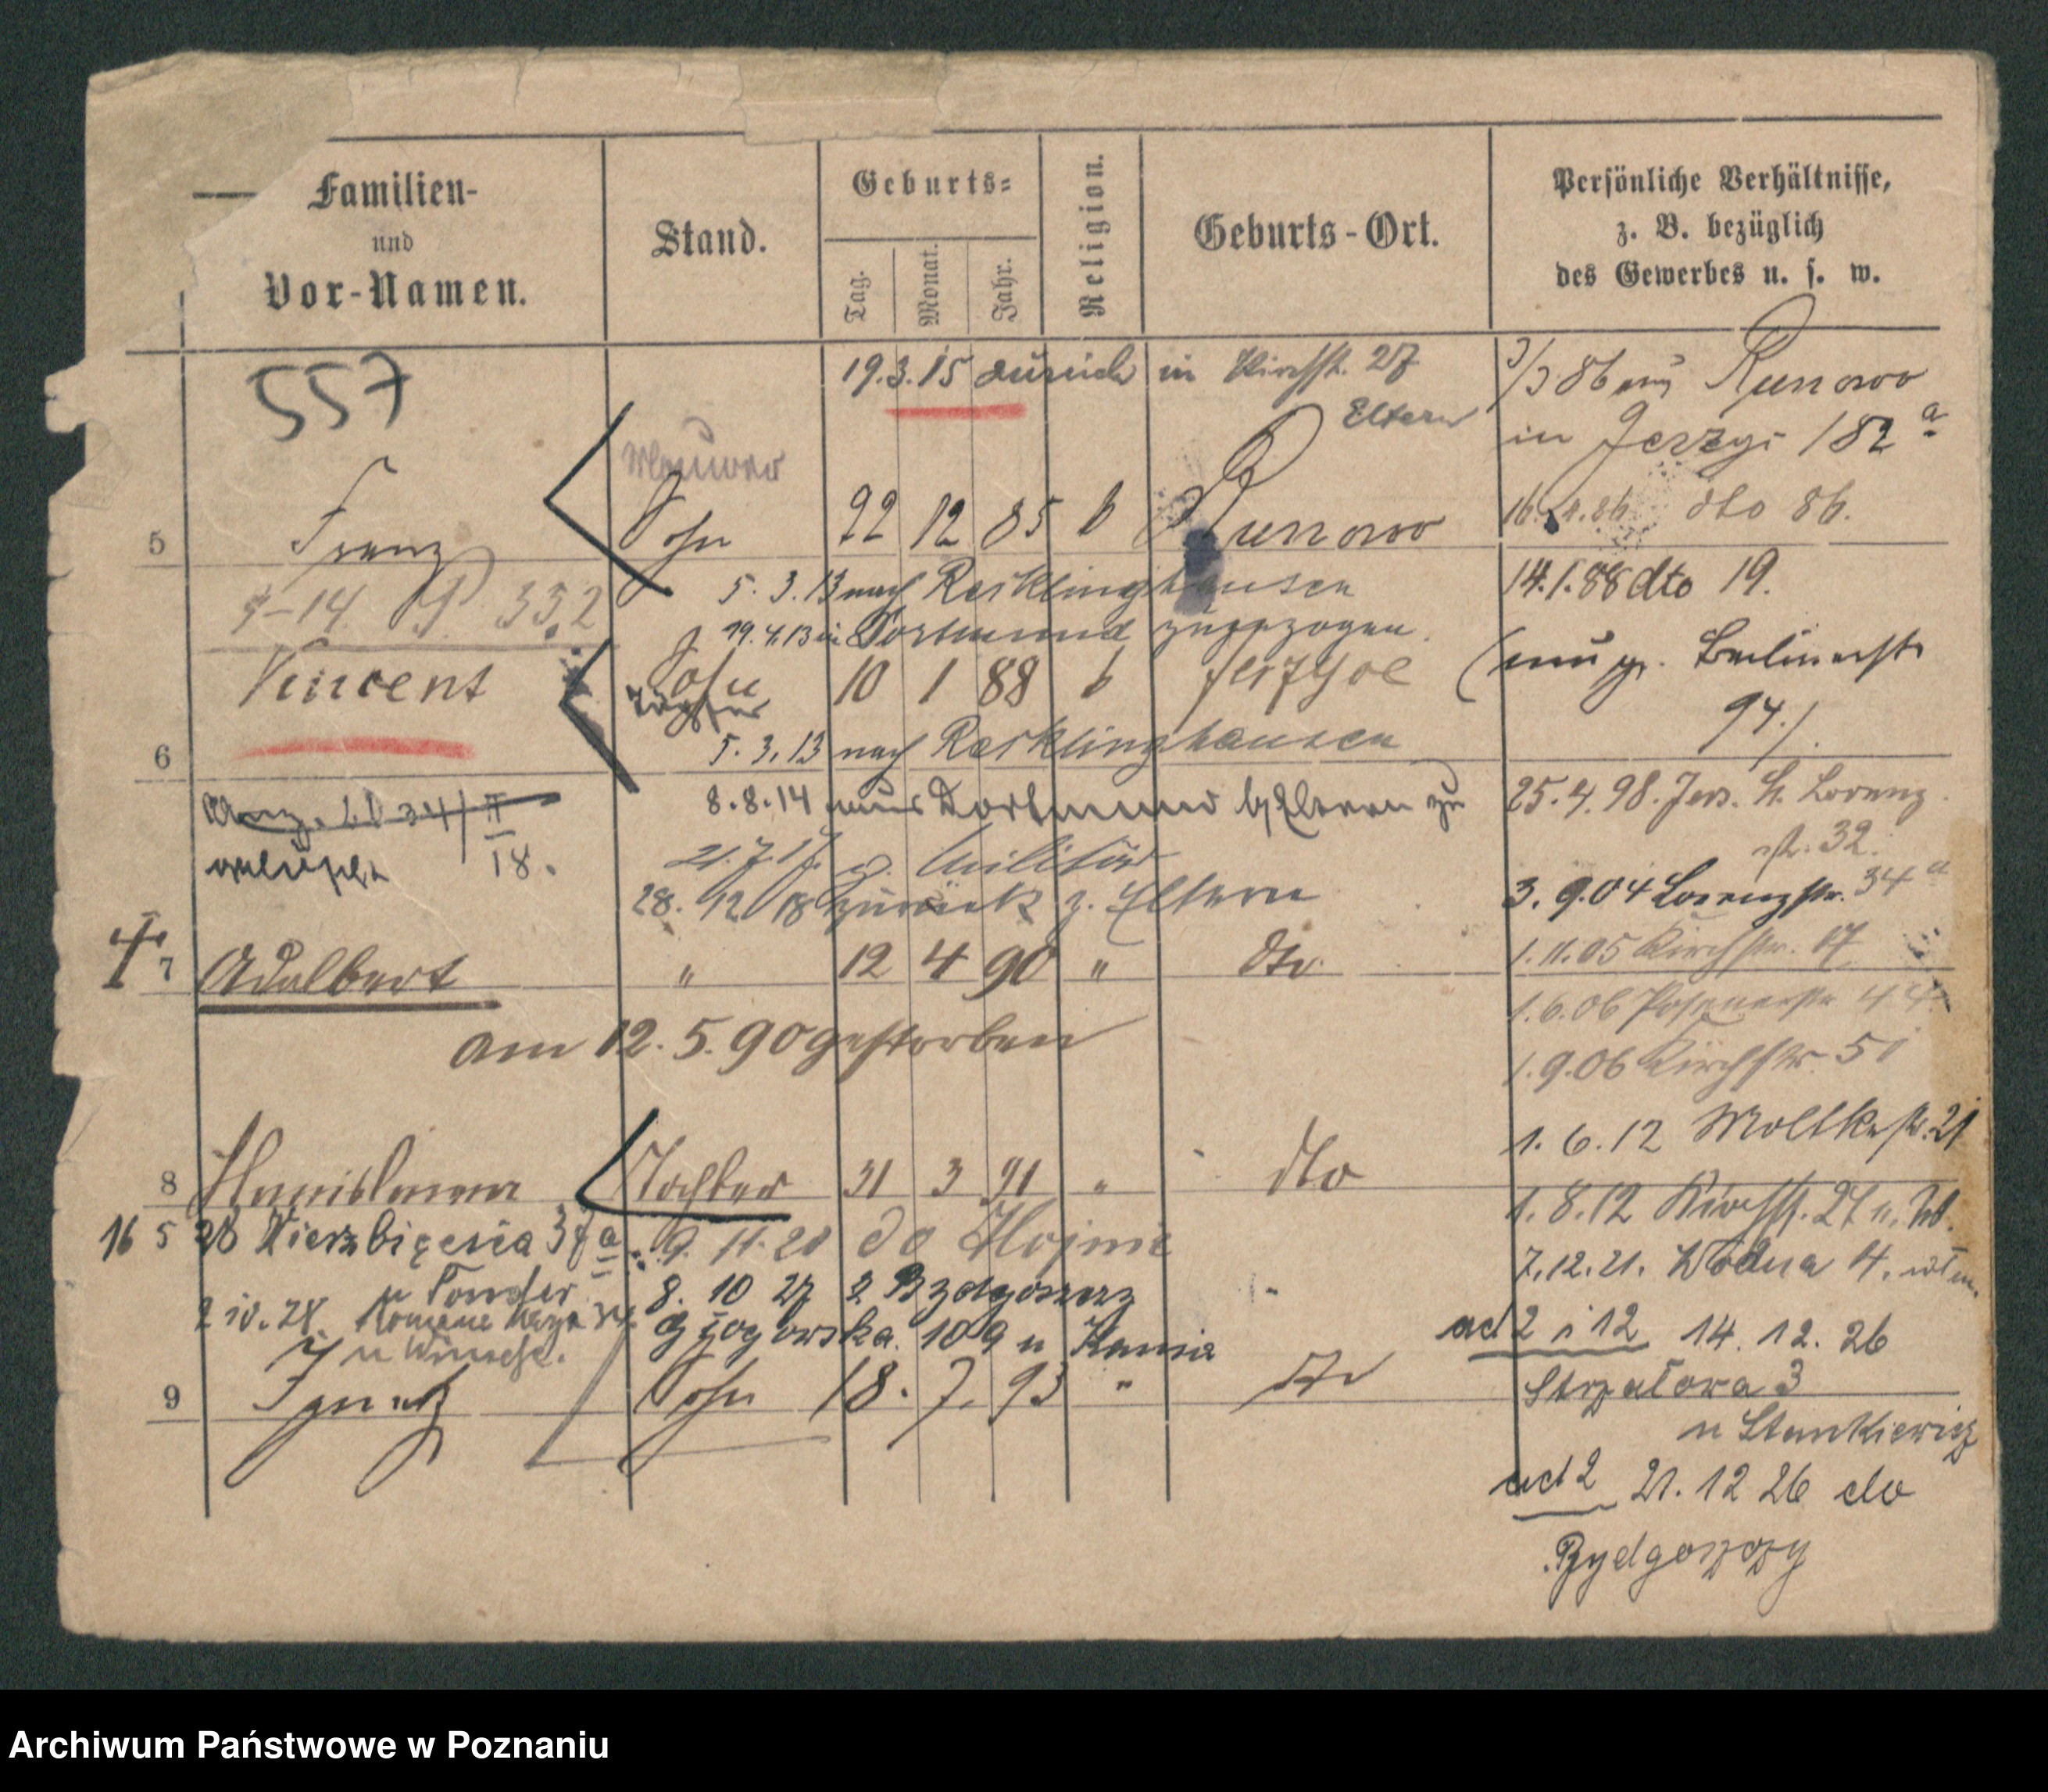 Familien-
und
Vor-Namen.
Stand.
Geburts-
Tag.
Monat.
Jahr.
Religion.
Geburts-Ort.
Persönliche Verhältnisse,
z. B. bezüglich
des Gewerbes u. s. w.
557
19.3.15 zurück in Kirchst. 27
Eltern
Maurer
5 Franz Sohn 22 12 85 b Runowo
5. 3. 13 nach Recklinghausen
19.4.13 in Dortmund zugezogen.
6 Vincent Sohn 10 1 88 b Jerzyce
5. 3. 13 nach Recklinghausen
8.8.14 aus Dortmund Eltern zu
gelöscht 18.
21.7.17. z. Militär
28. 12 18 zurück z. Eltern
7 Adalbert " 12 4 90 " dto
am 12. 5. 90 gestorben
8 Tochter 31 3 91 " dto
16 5 28 Wierzbięcica 37a
9. 11. 20 do
8. 10 27 z Bydgoszcz
2 10. 28.
Głogowska 109 u Kania
9 Ignatz Sohn 18. 7. 93 " dto
3/3 86 aus Runowo
in Jerzyc 182 a
16. 4. 86 dto 86.
14.1.88 dto 19.
Berlinerst
94.
25. 4. 98. Jers. Lorenz
st. 32.
3. 9. 04 Lorenzstr. 34 a
1. 11. 05 Kirchstr. 17
1. 6. 06 Posenerstr 44
1. 9. 06 Kirchstr. 51
1. 6. 12 Moltkestr. 21
1. 8. 12 Kirchst. 27
7. 12. 21. Wodna 4.
ad 2 i 12 14. 12. 26
Strzałowa 3
u Stankiewicz
ad 2 21. 12 26 do
Bydgoszczy
Archiwum Państwowe w Poznaniu